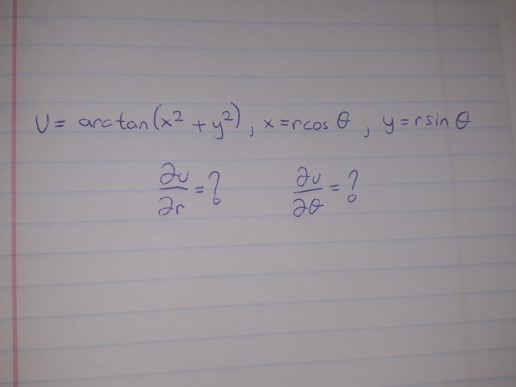 U= arctan(x² + y²), x=rcos θ, y=rsin θ
∂u/∂r = ? ∂u/∂θ = ?